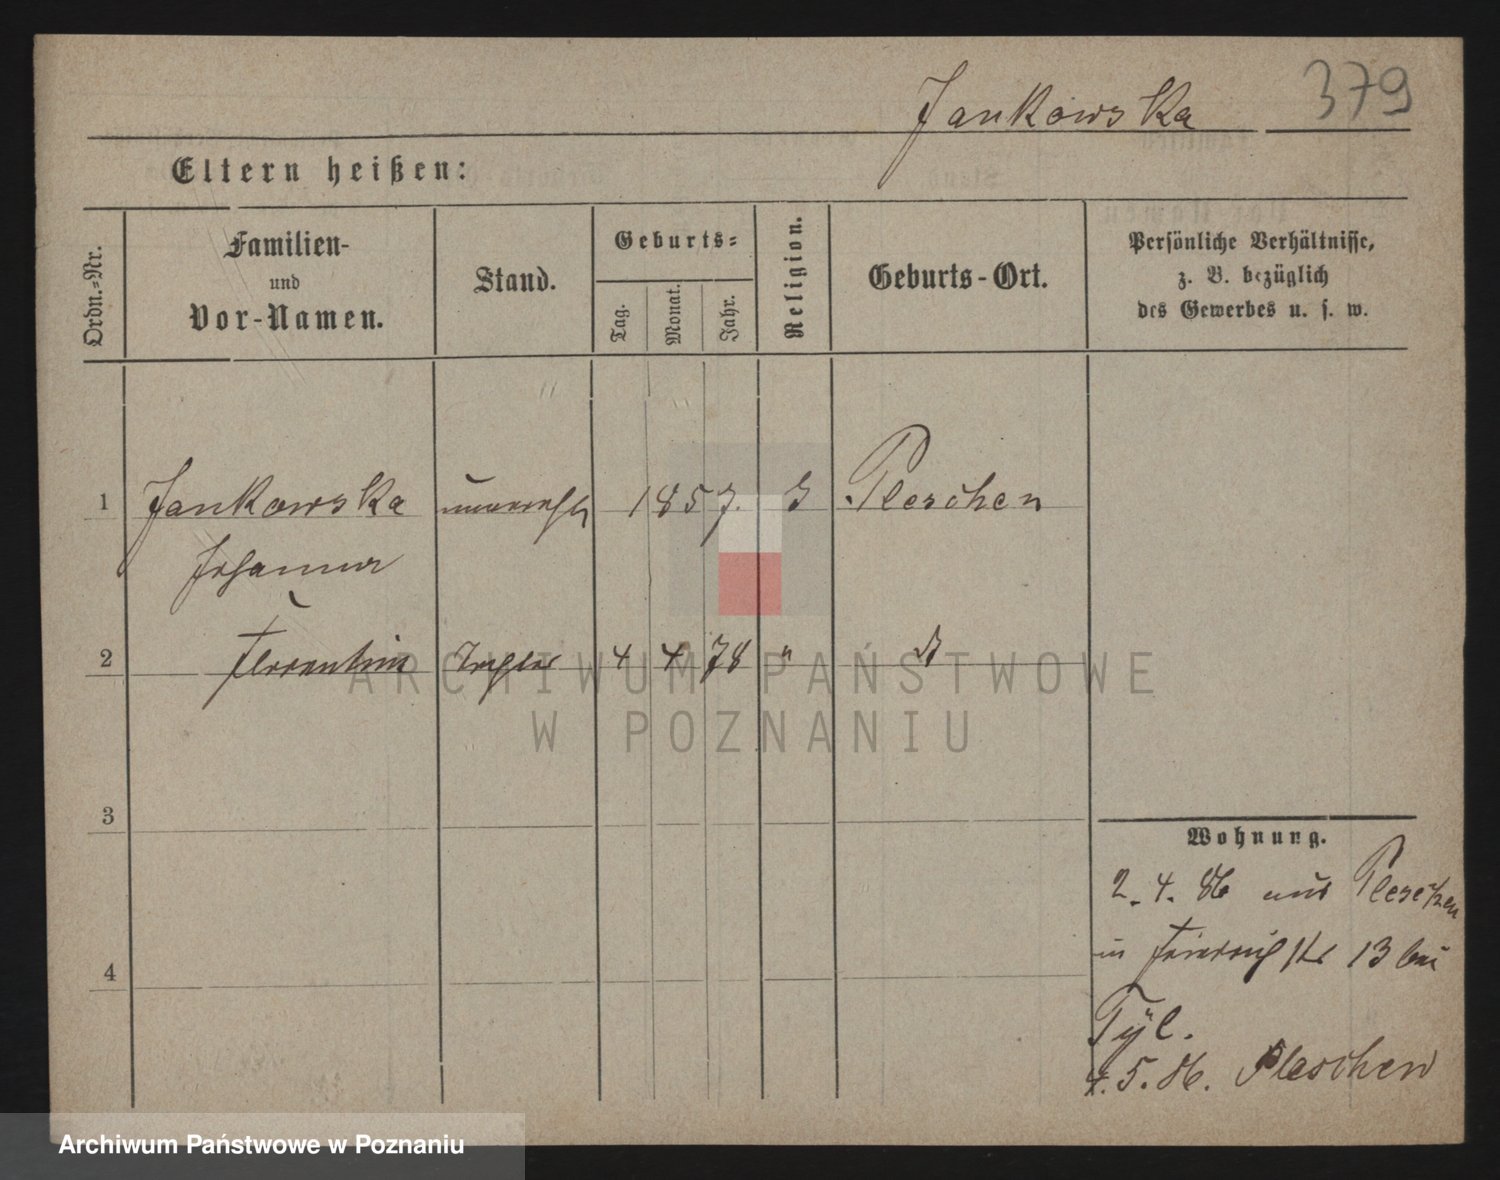 Jankowska 379
Eltern heißen:
Ordn.-Nr.
Familien-
und
Vor-Namen.
Stand.
Geburts-
Tag.
Monat.
Jahr.
Religion.
Geburts-Ort.
Persönliche Verhältnisse,
z. B. bezüglich
des Gewerbes u. s. w.
1 Jankowska unverehl 1857. Pleschen
Johanna
2 Florentina Tochter 4 4 78 "
3
4
Wohnung.
2. 4. 86 aus Pleschen
in 13 bei
4. 5. 86. Pleschen
ARCHIWUM PAŃSTWOWE
W POZNANIU
Archiwum Państwowe w Poznaniu